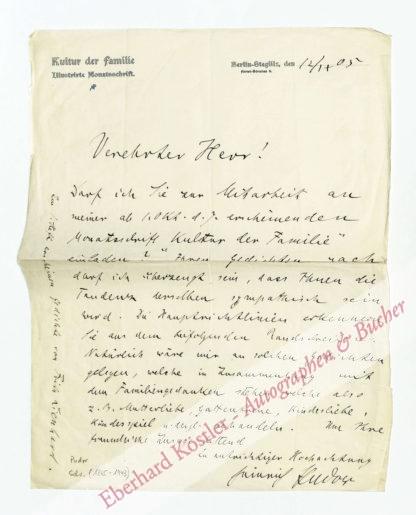 Kultur der Familie
Illustrirte Monatsschrift.
Berlin-Steglitz, den 12/IX 05
Verehrter Herr!
Darf ich Sie zur Mitarbeit an
meiner ab 1. Okt. d. J. erscheinenden
Monatsschrift "Kultur der Familie"
einladen? Ihren Gedichten nach
darf ich überzeugt sein, dass Ihnen die
Tendenz derselben sympathisch sein
wird. Die Hauptrichtlinien erkennen
Sie aus dem beifolgenden Rundschreiben.
Natürlich wäre mir an solchen Gedichten
gelegen, welche in Zusammenhang mit
dem Familiengedanken stehen, welche also
z. B. Mutterliebe, Gattentreue, Kinderliebe,
Kinderspiel u. s. w. behandeln. Um Ihre
freundliche Zusage bittend
in aufrichtiger Hochachtung
Heinrich Pudor
Pudor
Eberhard Köstler Autographen & Bücher